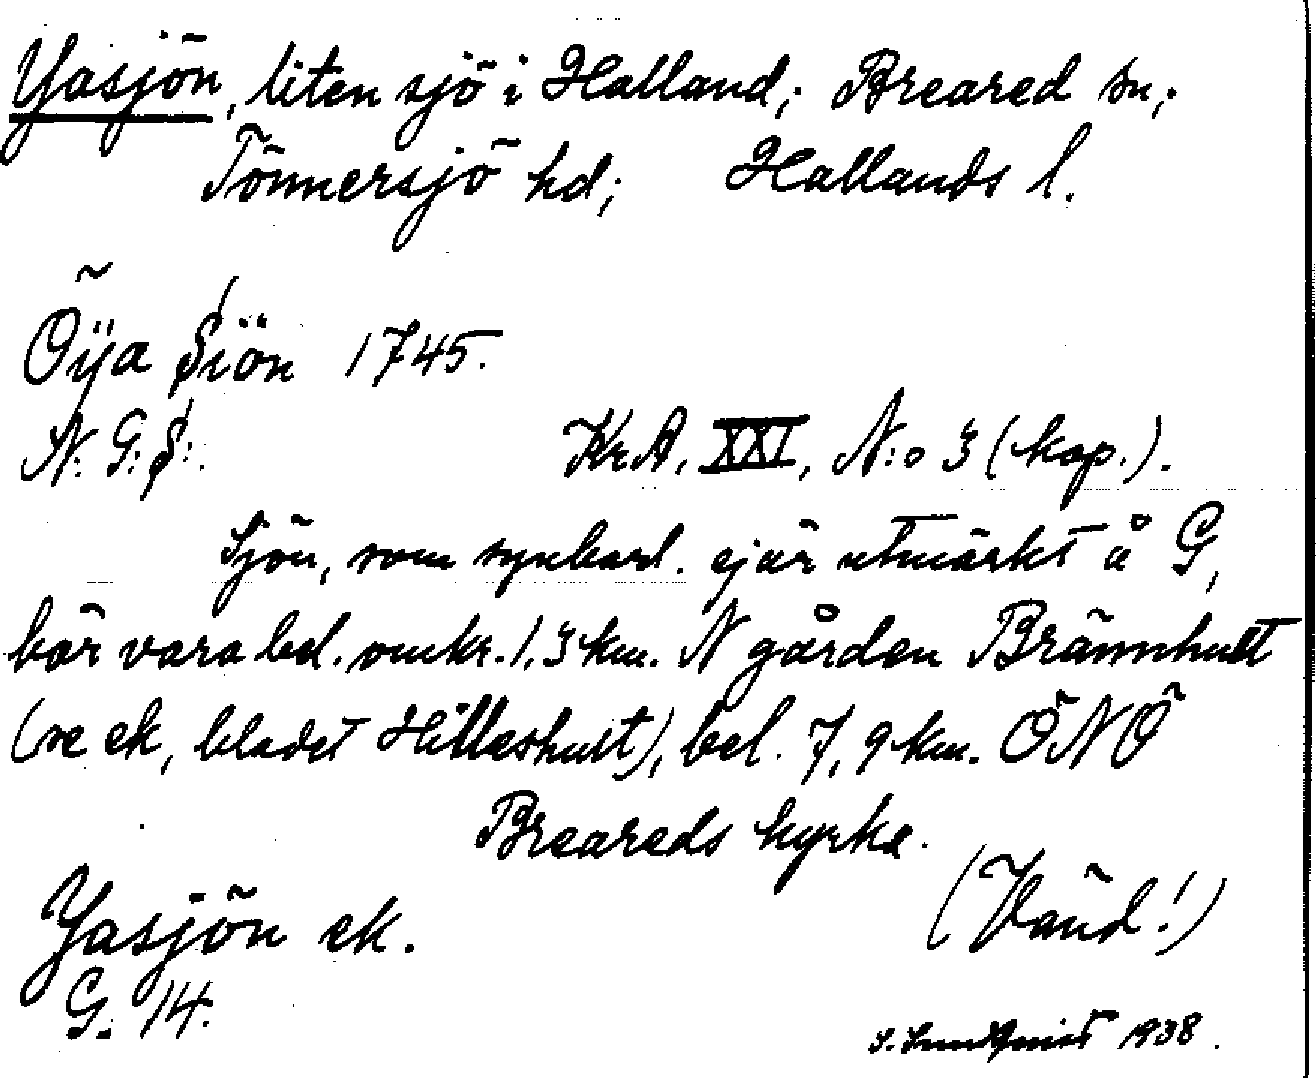 Yasjön, liten sjö i Halland; Breared sn;
Tönnersjö hd; Hallands l.
Öÿa Siön 1745.
N: G: S:. Kr.A. XXI, N:o 3 (kop.).
Sjön, som synbarl. ej är utmärkt å G,
bör vara bel. omkr. 1,3 km. N gården Brännhult
(se ek, bladet Hilleshult), bel. 7,9 km. ÖNÖ
Breareds kyrka.
(Vänd!)
Yasjön ek.
G. 14.
S. Lundqvist 1938.